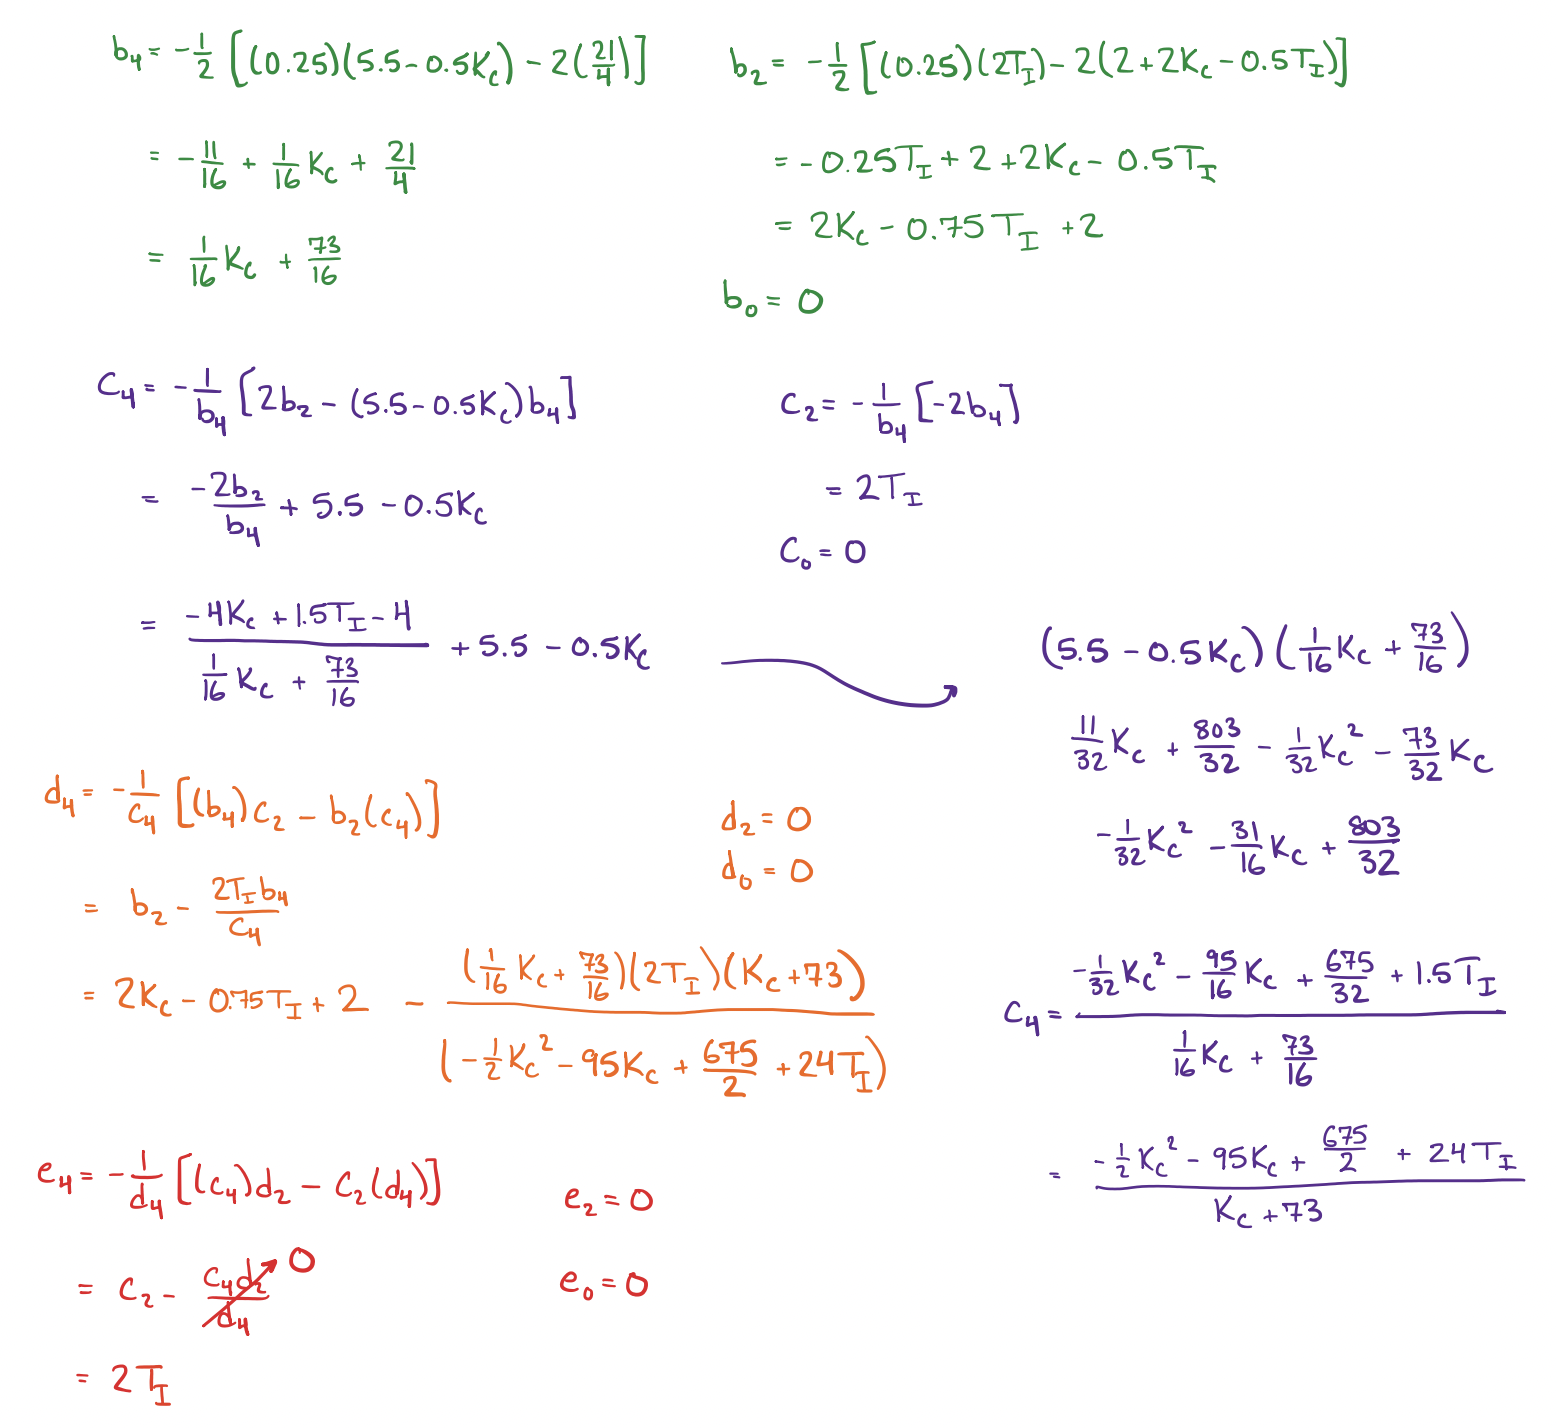 b₄ = -1/2 [(0.25)(5.5 - 0.5K_C) - 2(21/4)]
= -11/16 + 1/16 K_C + 21/4
= 1/16 K_C + 73/16
b₂ = -1/2 [(0.25)(2T_I) - 2(2 + 2K_C - 0.5T_I)]
= -0.25T_I + 2 + 2K_C - 0.5T_I
= 2K_C - 0.75T_I + 2
b₀ = 0
C₄ = -1/b₄ [2b₂ - (5.5 - 0.5K_C)b₄]
= -2b₂/b₄ + 5.5 - 0.5K_C
= (-4K_C + 1.5T_I - 4)/(1/16 K_C + 73/16) + 5.5 - 0.5K_C
C₂ = -1/b₄ [-2b₄]
= 2T_I
C₀ = 0
(5.5 - 0.5K_C)(1/16 K_C + 73/16)
11/32 K_C + 803/32 - 1/32 K_C² - 73/32 K_C
-1/32 K_C² - 31/16 K_C + 803/32
C₄ = (-1/32 K_C² - 95/16 K_C + 675/32 + 1.5T_I)/(1/16 K_C + 73/16)
= (-1/2 K_C² - 95K_C + 675/2 + 24T_I)/(K_C + 73)
d₄ = -1/C₄ [(b₄)C₂ - b₂(C₄)]
= b₂ - 2T_I b₄/C₄
= 2K_C - 0.75T_I + 2 - (1/16 K_C + 73/16)(2T_I)(K_C + 73)/(-1/2 K_C² - 95K_C + 675/2 + 24T_I)
d₂ = 0
d₀ = 0
e₄ = -1/d₄ [(C₄)d₂ - C₂(d₄)]
= C₂ - C₄d₂/d₄ 0
= 2T_I
e₂ = 0
e₀ = 0